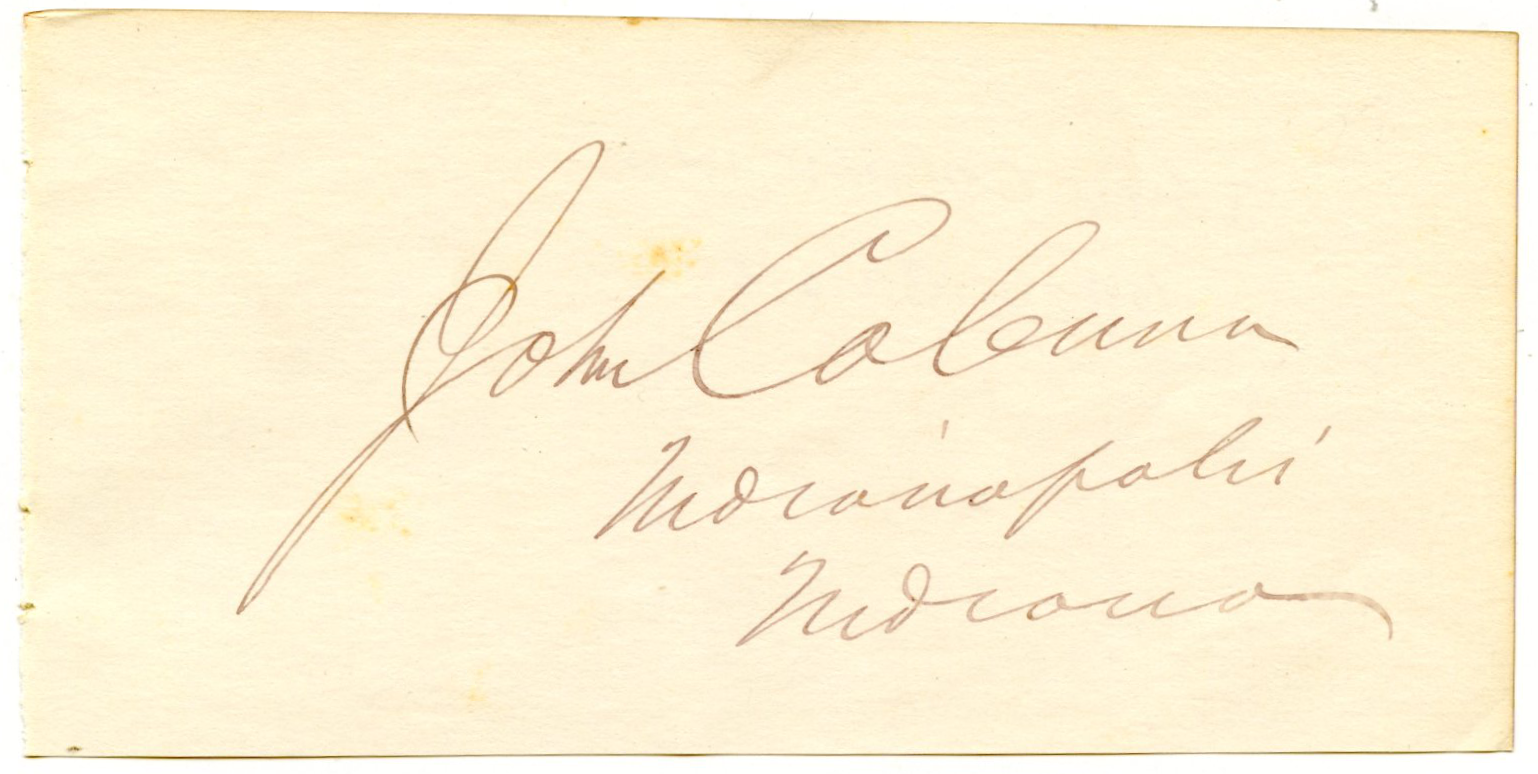 John Coburn
Indianapolis
Indiana